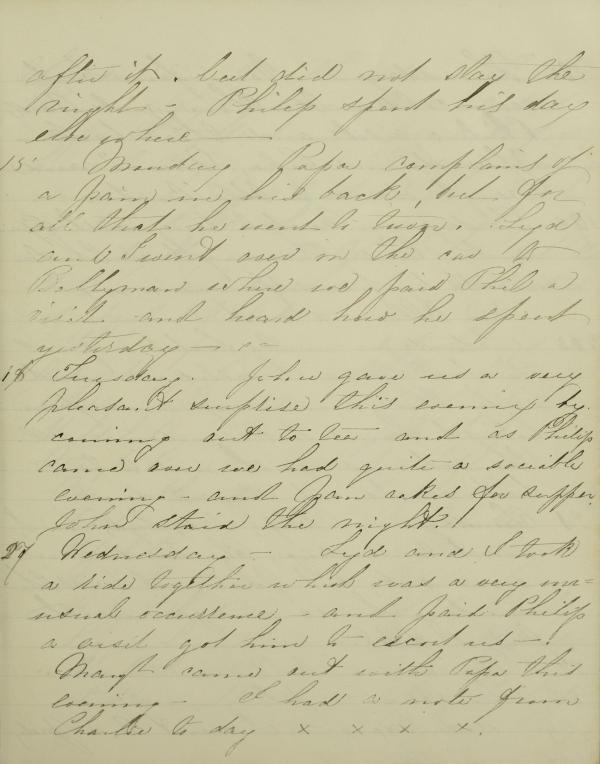 after it. but did not stay the
night - Philip spent his day
elsewhere
15 Monday Papa complains of
a pain in his back, but for
all that he went to town. Lyd
and I went over in the car to
where we paid Phil a
visit and heard how he spent
yesterday -
16 Tuesday. John gave us a very
pleasant surprise this evening by
coming out to tea and as Philip
came over we had quite a sociable
evening - and Pan cakes for supper.
John staid the night.
Wednesday - Lyd and I took
a ride together which was a very un=
usual occurrence - and paid Philip
a visit got him to escort us -
came out with Papa this
evening - I had a note from
Charlie to day x x x x.